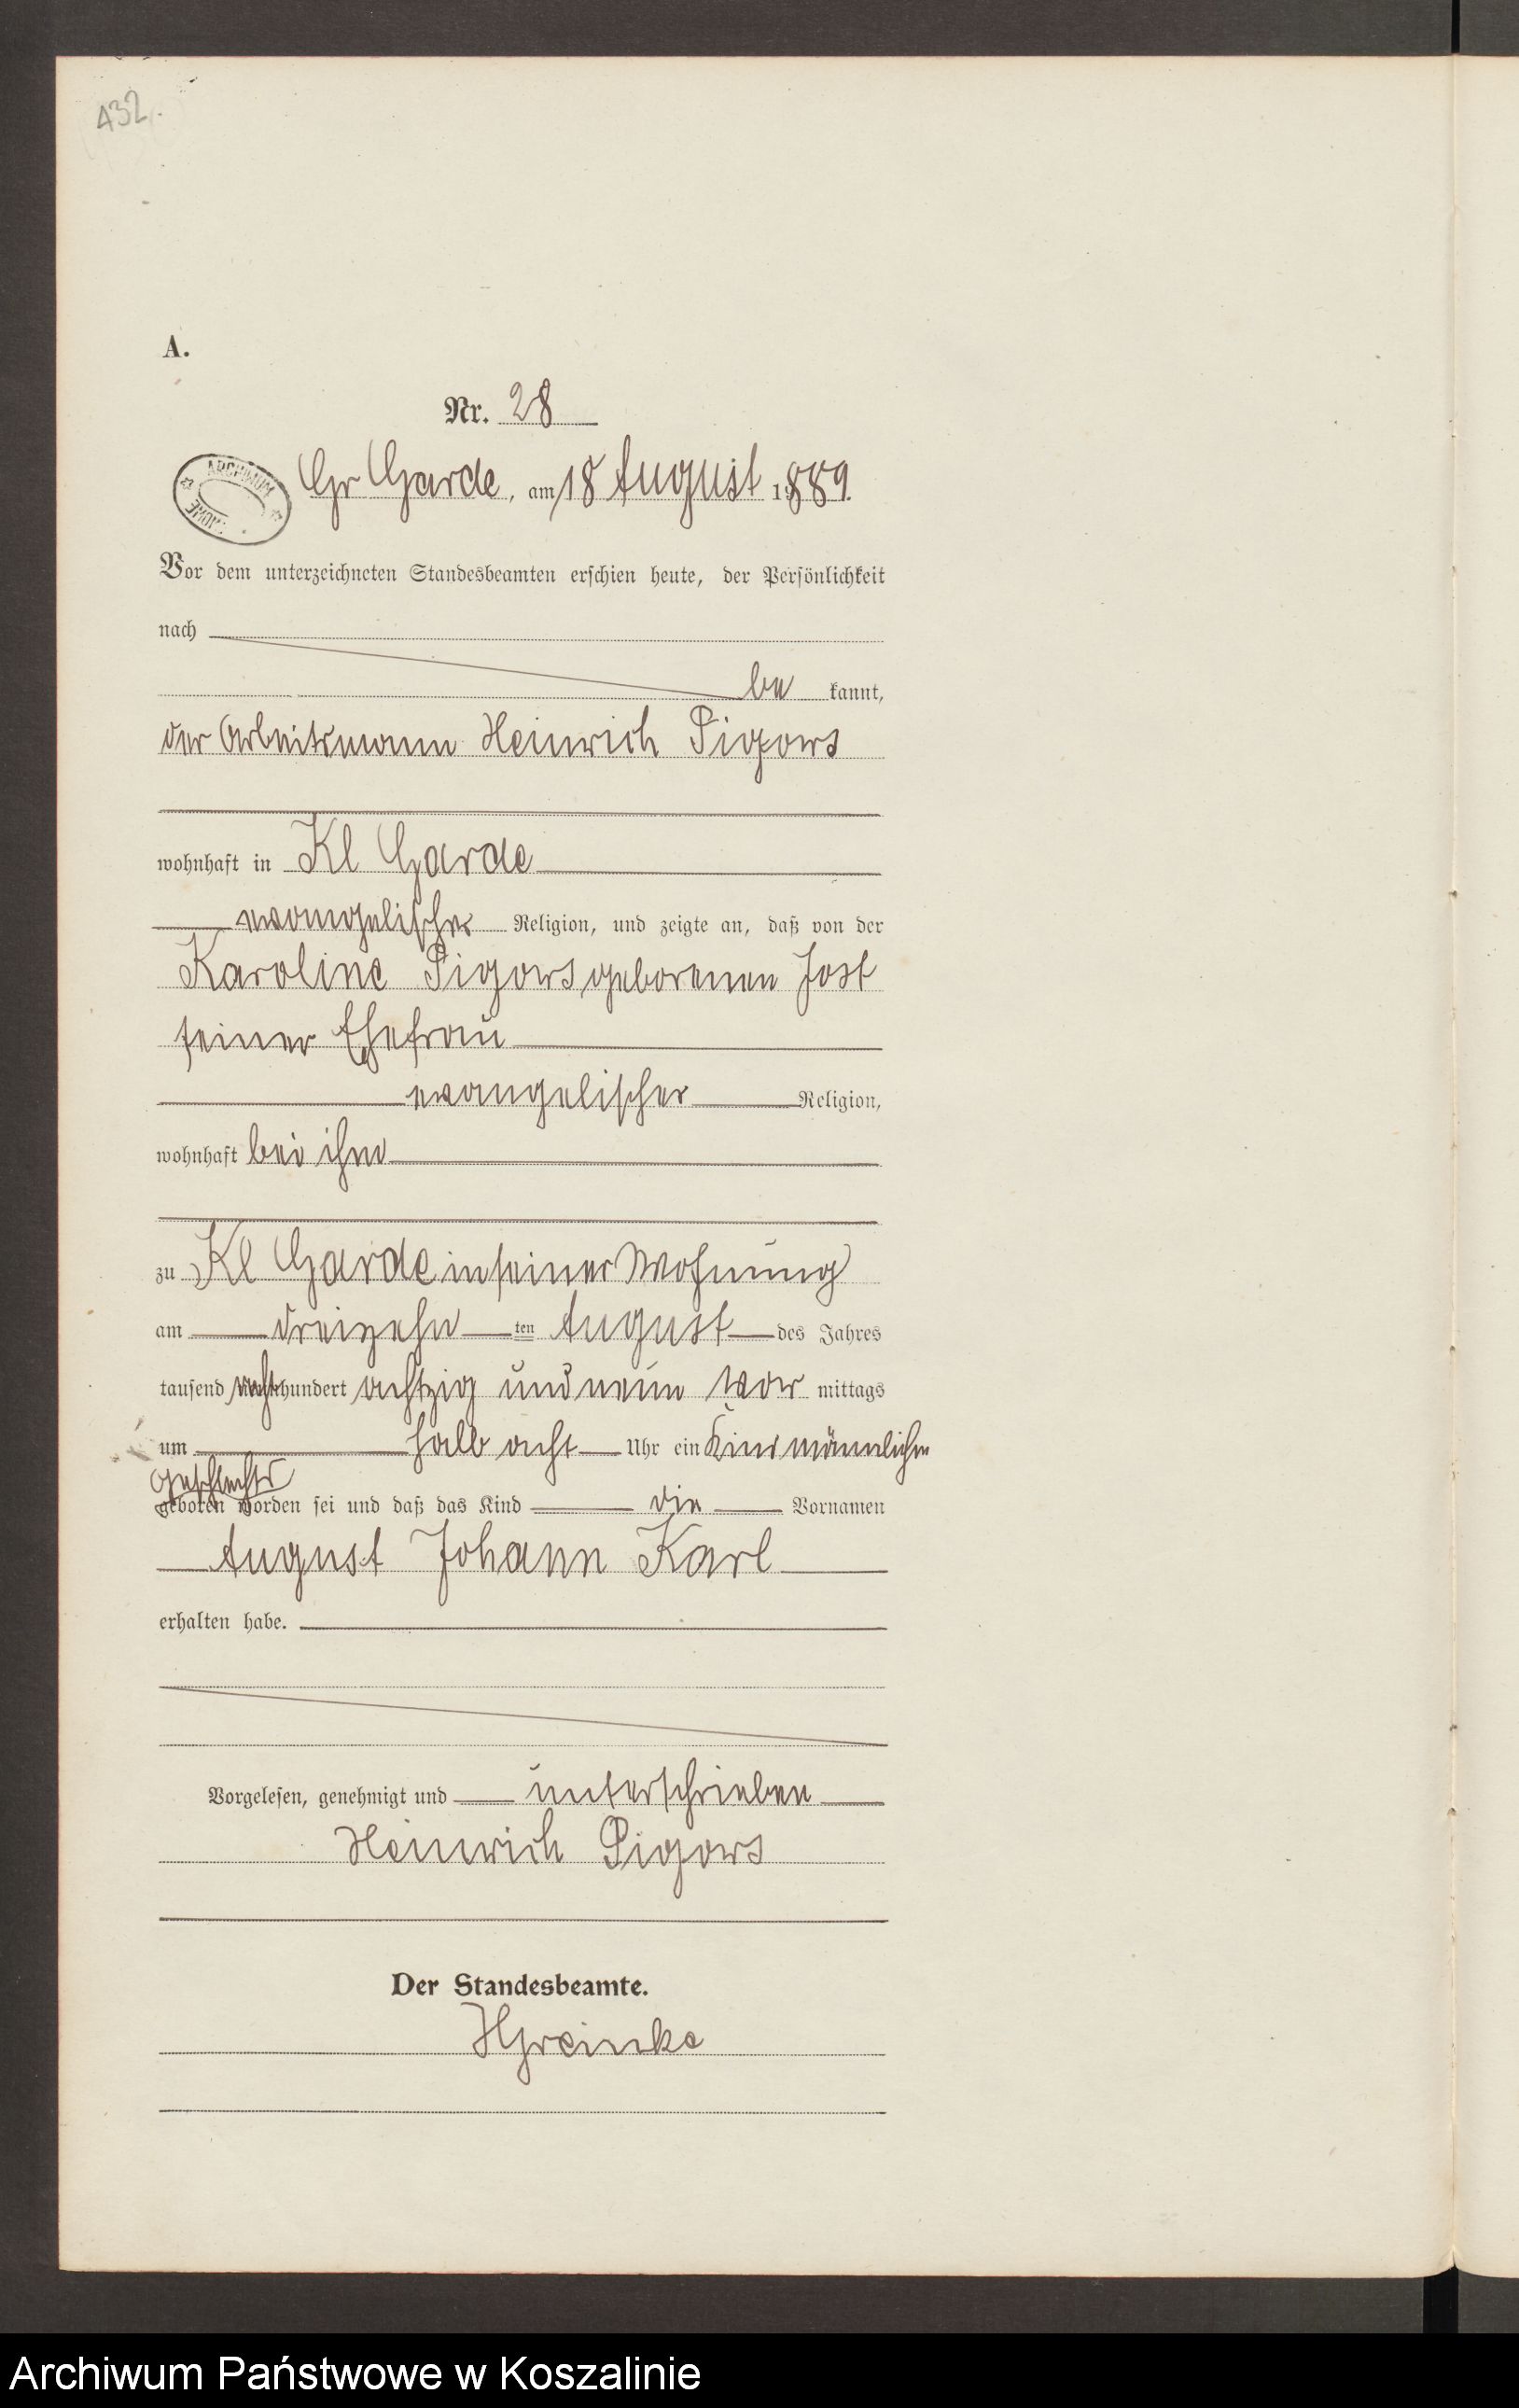 432.
A.
Nr. 28
ARCHIWUM
Gr Garde, am 18 August 1889.
Vor dem unterzeichneten Standesbeamten erschien heute, der Persönlichkeit
nach
be kannt,
der Arbeitsmann Heinrich Pigors
wohnhaft in Kl Garde
evangelischer Religion, und zeigte an, daß von der
Karoline Pigors geborenen Jost
seiner Ehefrau
evangelischer Religion,
wohnhaft bei ihm
zu Kl Garde in seiner Wohnung
am dreizehn ten August des Jahres
tausend acht hundert achtzig und neun Vor mittags
um halb acht Uhr ein Kind männlichen
Geschlechts
geboren worden sei und daß das Kind die Vornamen
August Johann Karl
erhalten habe.
Vorgelesen, genehmigt und unterschrieben
Heinrich Pigors
Der Standesbeamte.
HGreinke
Archiwum Państwowe w Koszalinie